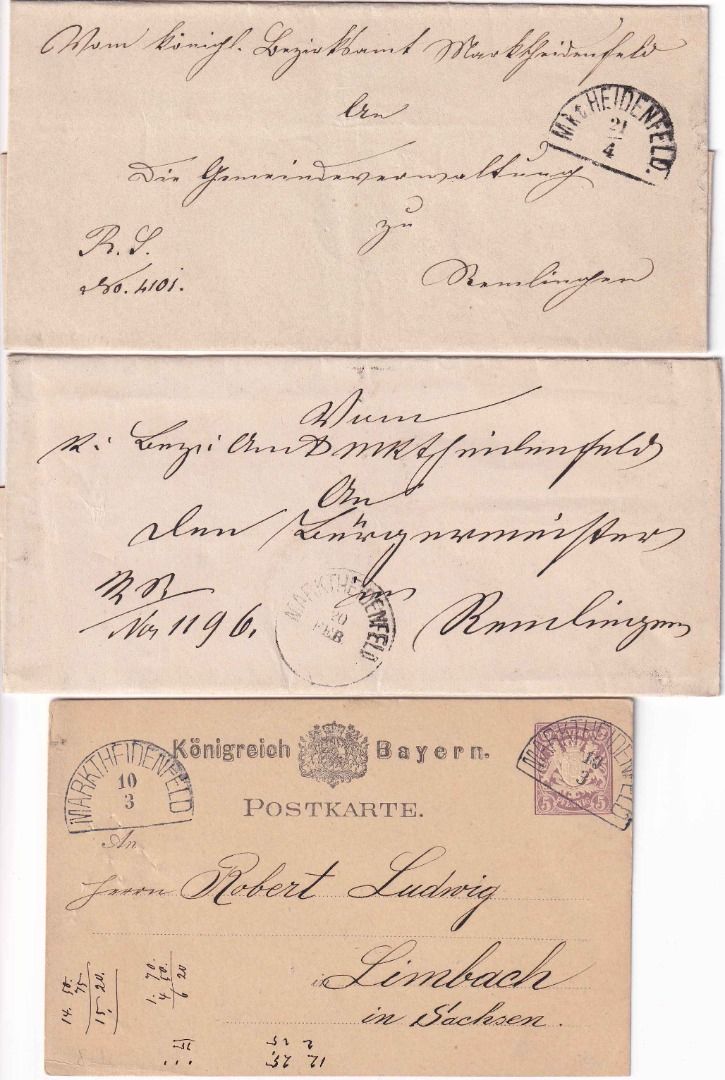 Vom königl. Bezirksamt Marktheidenfeld
An
Die Gemeindeverwaltung
zu
Remlingen
R. S.
No. 4101.
MKTHEIDENFELD.
21
4
Vom
K: Bez: Amt Mktheidenfeld
An
den Bürgermeister
zu
Remlingen
R S
No, 1196.
MARKTHEIDENFELD
20
FEB.
Königreich Bayern.
POSTKARTE.
MARKTHEIDENFELD
10
3
MARKTHEIDENFELD
10
3
5 5
An
Herrn Robert Ludwig
in Limbach
in Sachsen.
14. 50.
75
15, 20.
1. 70
4 50.
6 20
12. 25.
2 25